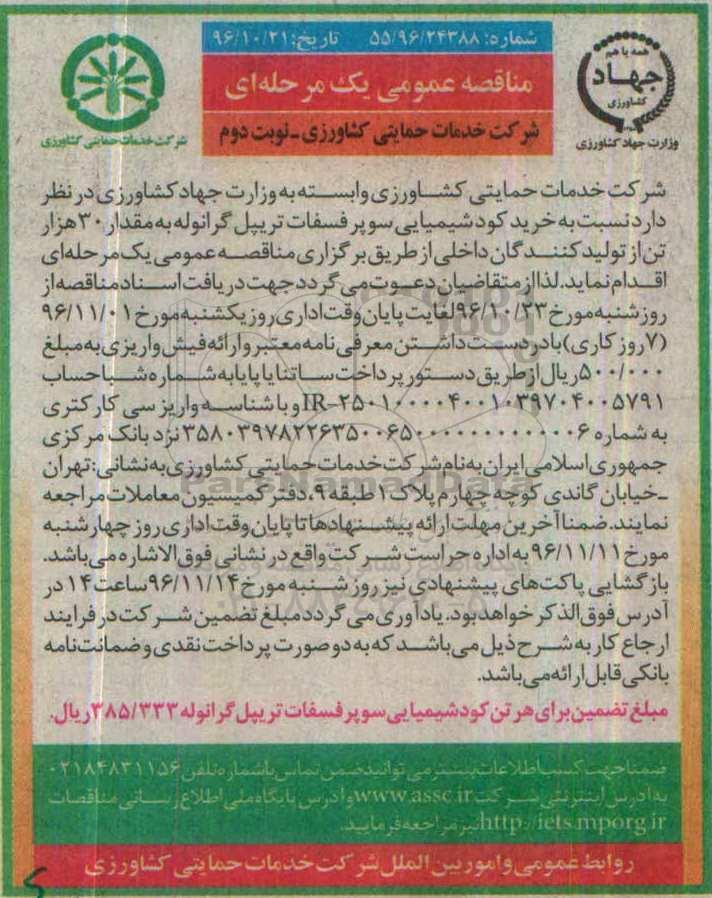 شماره: ۵۵/۹۶/۲۴۳۸۸ تاریخ: ۹۶/۱۰/۲۱
همه با هم
جهاد
کشاورزی
وزارت جهاد کشاورزی
شرکت خدمات حمایتی کشاورزی
مناقصه عمومی یک مرحله‌ای
شرکت خدمات حمایتی کشاورزی ـ نوبت دوم
شرکت خدمات حمایتی کشاورزی وابسته به وزارت جهاد کشاورزی در نظر
دارد نسبت به خرید کود شیمیایی سوپر فسفات تریپل گرانوله به مقدار ۳۰ هزار
تن از تولید کنندگان داخلی از طریق برگزاری مناقصه عمومی یک مرحله‌ای
اقدام نماید. لذا از متقاضیان دعوت می گردد جهت دریافت اسناد مناقصه از
روز شنبه مورخ ۹۶/۱۰/۲۳ لغایت پایان وقت اداری روز یکشنبه مورخ ۹۶/۱۱/۰۱
(۷ روز کاری) با در دست داشتن معرفی نامه معتبر و ارائه فیش واریزی به مبلغ
۵۰۰/۰۰۰ ریال از طریق دستور پرداخت ساتنا یا پایا به شماره شبا حساب
IR-۲۵۰۱۰۰۰۰۴۰۰۱۰۳۹۷۰۴۰۰۵۷۹۱ و با شناسه واریز سی کارکتری
به شماره ۳۵۸۰۳۹۷۸۲۲۶۳۵۰۰۶۵۰۰۰۰۰۰۰۰۰۰۰۰۶ نزد بانک مرکزی
جمهوری اسلامی ایران به نام شرکت خدمات حمایتی کشاورزی به نشانی: تهران
ـ خیابان گاندی کوچه چهارم پلاک ۱ طبقه ۹، دفتر کمیسیون معاملات مراجعه
نمایند. ضمنا آخرین مهلت ارائه پیشنهادها تا پایان وقت اداری روز چهارشنبه
مورخ ۹۶/۱۱/۱۱ به اداره حراست شرکت واقع در نشانی فوق الاشاره می باشد.
بازگشایی پاکت های پیشنهادی نیز روز شنبه مورخ ۹۶/۱۱/۱۴ ساعت ۱۴ در
آدرس فوق الذکر خواهد بود. یادآوری می گردد مبلغ تضمین شرکت در فرایند
ارجاع کار به شرح ذیل می باشد که به دو صورت پرداخت نقدی و ضمانت نامه
بانکی قابل ارائه می باشد.
مبلغ تضمین برای هر تن کود شیمیایی سوپر فسفات تریپل گرانوله ۳۸۵/۳۳۳ ریال.
ضمنا جهت کسب اطلاعات بیشتر می توانید ضمن تماس با شماره تلفن ۰۲۱۸۴۸۳۱۱۵۶
به آدرس اینترنتی شرکت www.assc.ir و آدرس پایگاه ملی اطلاع رسانی مناقصات
http://iets.mporg.ir نیز مراجعه فرمایید.
روابط عمومی و امور بین الملل شرکت خدمات حمایتی کشاورزی
ParsNamadData